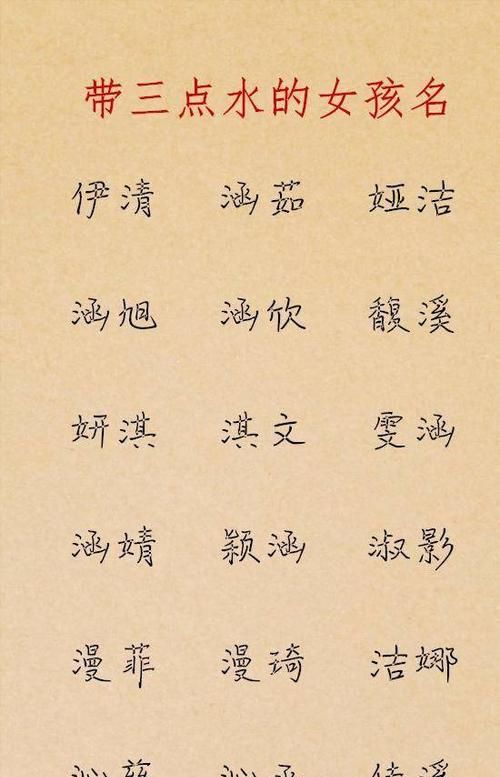 带三点水的女孩名
伊清 涵茹 娅洁
涵旭 涵欣 馥溪
妍淇 淇文 雯涵
涵婧 颖涵 淑影
漫菲 漫琦 洁娜